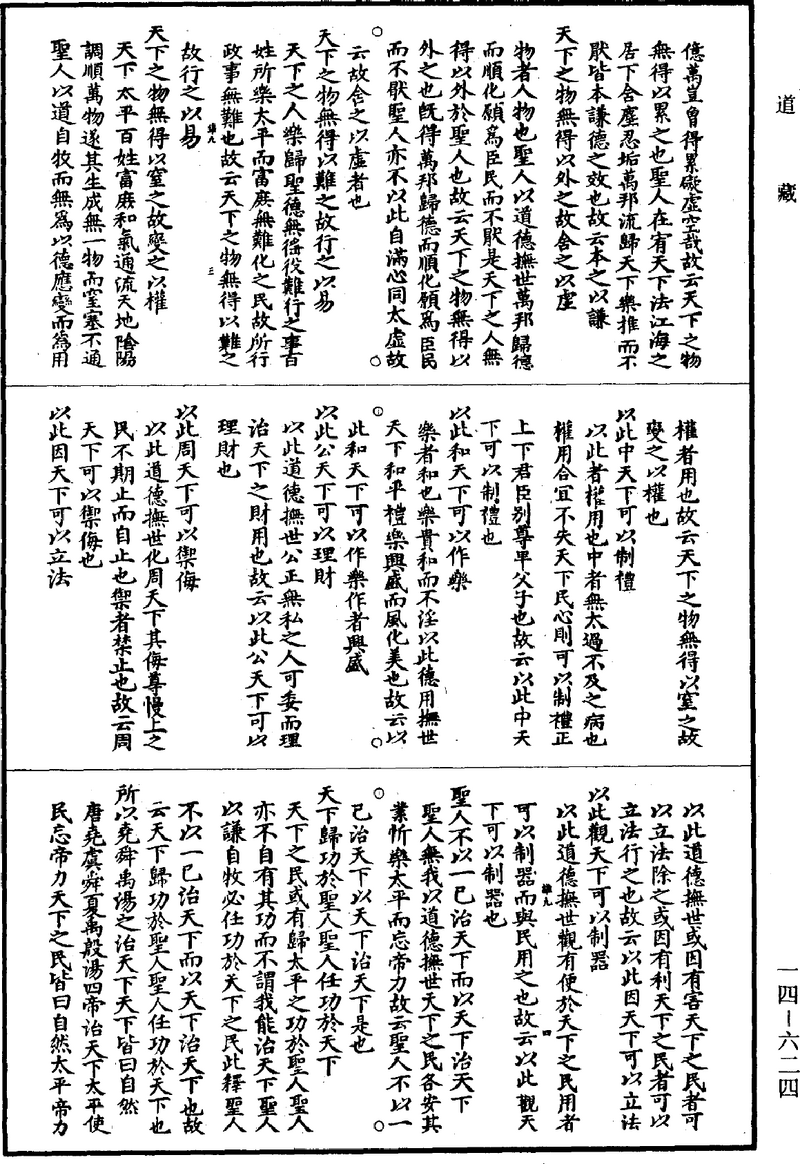 道藏
億萬豈曾得累礙虛空哉故云天下之物
無得以累之也聖人在宥天下法江海之
居下含塵忍垢萬邦流歸天下樂推而不
猒皆本謙德之效也故云本之以謙
天下之物無得以外之故含之以虛
物者人物也聖人以道德撫世萬邦歸德
而順化願爲臣民而不猒是天下之人無
得以外於聖人也故云天下之物無得以
外之也旣得萬邦歸德而順化願爲臣民
而不猒聖人亦不以此自滿心同太虛故
云故含之以虛者也
天下之物無得以難之故行之以易
天下之人樂歸聖德無徭役難行之事百
姓所樂太平而富庶無難化之民故所行
政事無難也故云天下之物無得以難之
故行之以易
雄九
三
天下之物無得以窒之故變之以權
天下太平百姓富庶和氣通流天地陰陽
調順萬物遂其生成無一物而窒塞不通
聖人以道自牧而無爲以德應變而爲用
權者用也故云天下之物無得以窒之故
變之以權也
以此中天下可以制禮
以此者權用也中者無太過不及之病也
權用合宜不失天下民心則可以制禮正
上下君臣別尊卑父子也故云以此中天
下可以制禮也
以此和天下可以作樂
樂者和也樂貴和而不淫以此德用撫世
天下和平禮樂興盛而風化美也故云以
此和天下可以作樂作者興盛
以此公天下可以理財
以此道德撫世公正無私之人可委而理
治天下之財用也故云以此公天下可以
理財也
以此周天下可以禦侮
以此道德撫世化周天下其侮辱慢上之
民不期止而自止也禦者禁止也故云周
天下可以禦侮也
以此因天下可以立法
以此道德撫世或因有害天下之民者可
以立法除之或因有利天下之民者可以
立法行之也故云以此因天下可以立法
以此觀天下可以制器
以此道德撫世觀有便於天下之民用者
雄九
四
可以制器而與民用之也故云以此觀天
下可以制器也
聖人不以一己治天下而以天下治天下
聖人無我以道德撫世天下之民各安其
業忻樂太平而忘帝力故云聖人不以一
己治天下以天下治天下是也
天下歸功於聖人聖人任功於天下
天下之民或有歸太平之功於聖人聖人
亦不自有其功而不謂我能治天下聖人
以謙自牧必任功於天下之民此釋聖人
不以一己治天下而以天下治天下也故
云天下歸功於聖人聖人任功於天下也
所以堯舜禹湯之治天下天下皆曰自然
唐堯虞舜夏禹殷湯四帝治天下太平使
民忘帝力天下之民皆曰自然太平帝力
一四－六二四